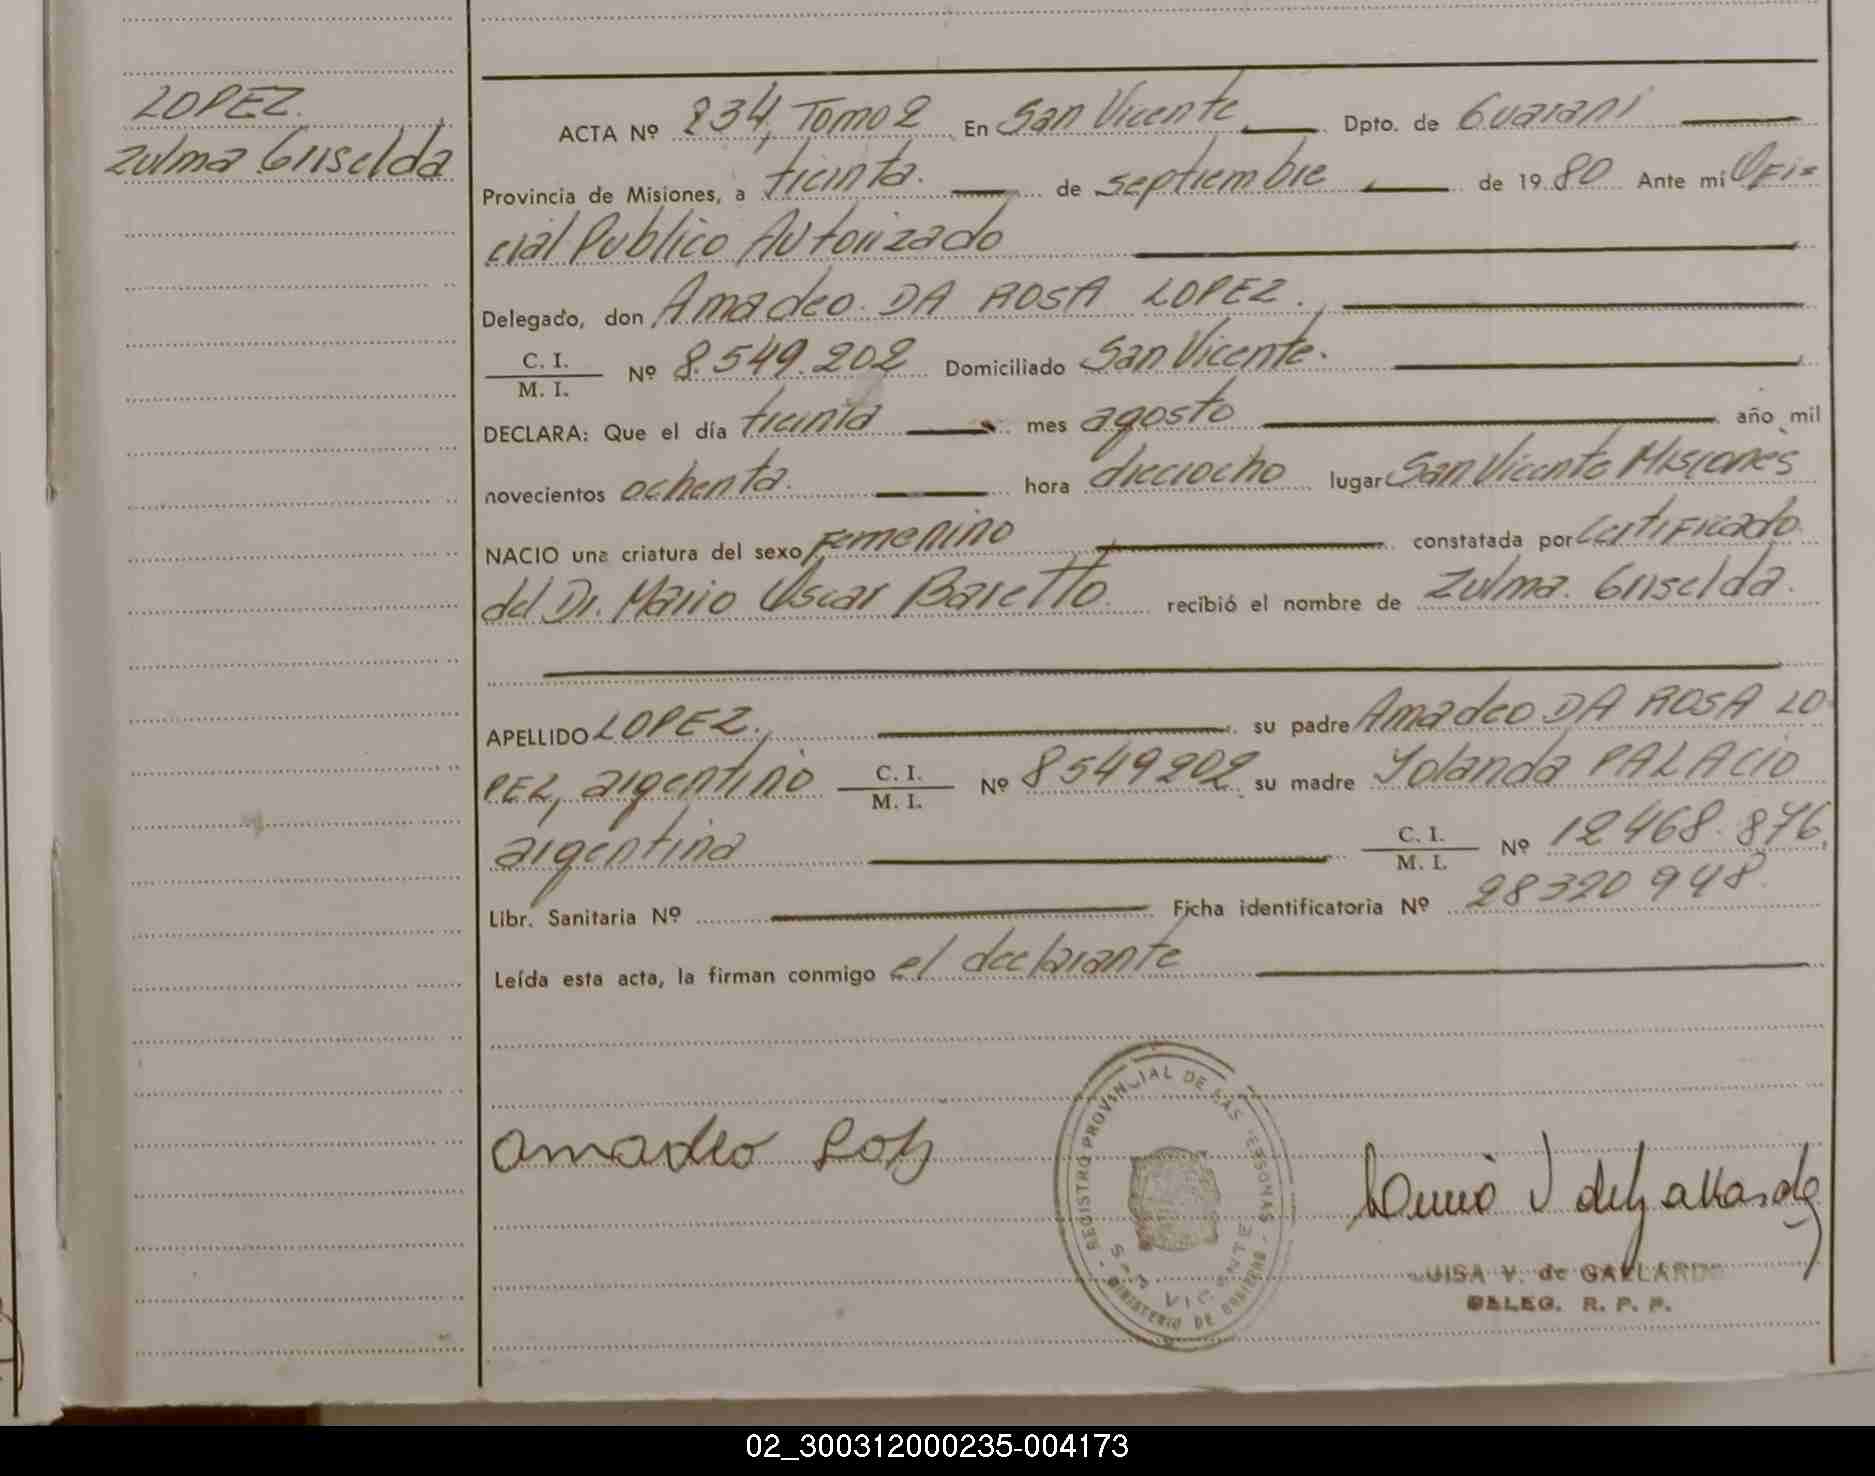 LOPEZ.
Zulma Griselda
ACTA Nº 234, Tomo 2 En San Vicente Dpto. de Guarani
Provincia de Misiones, a treinta. de septiembre de 1980 Ante mí Ofi=
cial Publico Autorizado
Delegado, don Amadeo DA ROSA LOPEZ.
C. I.
M. I. Nº 8.549.202 Domiciliado San Vicente.
DECLARA: Que el día treinta mes agosto año mil
novecientos ochenta. hora dieciocho lugar San Vicente Misiones
NACIO una criatura del sexo Femenino constatada por Certificado
del Dr. Mario Oscar Baretto. recibió el nombre de Zulma. Griselda.
APELLIDO LOPEZ. su padre Amadeo DA ROSA LO-
PEZ, argentino C. I.
M. I. Nº 8549202 su madre Yolanda PALACIO
argentina C. I.
M. I. Nº 12468.876,
Libr. Sanitaria Nº Ficha identificatoria Nº 28320948.
Leída esta acta, la firman conmigo el declarante
REGISTRO PROVINCIAL DE LAS PERSONAS
SAN VICENTE
MINISTERIO DE GOBIERNO
Amadeo
LUISA V. de GALLARDO
DELEG. R. P. P.
02_300312000235-004173